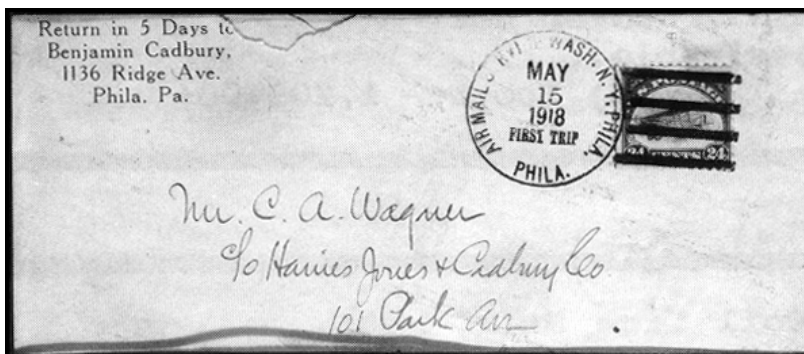 Return in 5 Days to
Benjamin Cadbury,
1136 Ridge Ave.
Phila. Pa.
AIR MAIL WASH. N.Y. PHILA.
MAY
15
1918
FIRST TRIP
PHILA.
24 CENTS 24
Mr. C. A. Wagner
c/o Haines Jones & Cadbury Co.
101 Park Av